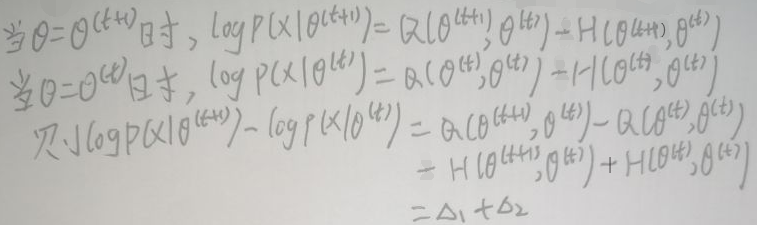 当θ=θ^(t+1)时，log P(X|θ^(t+1))=Q(θ^(t+1),θ^(t))-H(θ^(t+1),θ^(t))
当θ=θ^(t)时，log P(X|θ^(t))=Q(θ^(t),θ^(t))-H(θ^(t),θ^(t))
则log P(X|θ^(t+1))-log P(X|θ^(t))=Q(θ^(t+1),θ^(t))-Q(θ^(t),θ^(t))
-H(θ^(t+1),θ^(t))+H(θ^(t),θ^(t))
=Δ₁+Δ₂